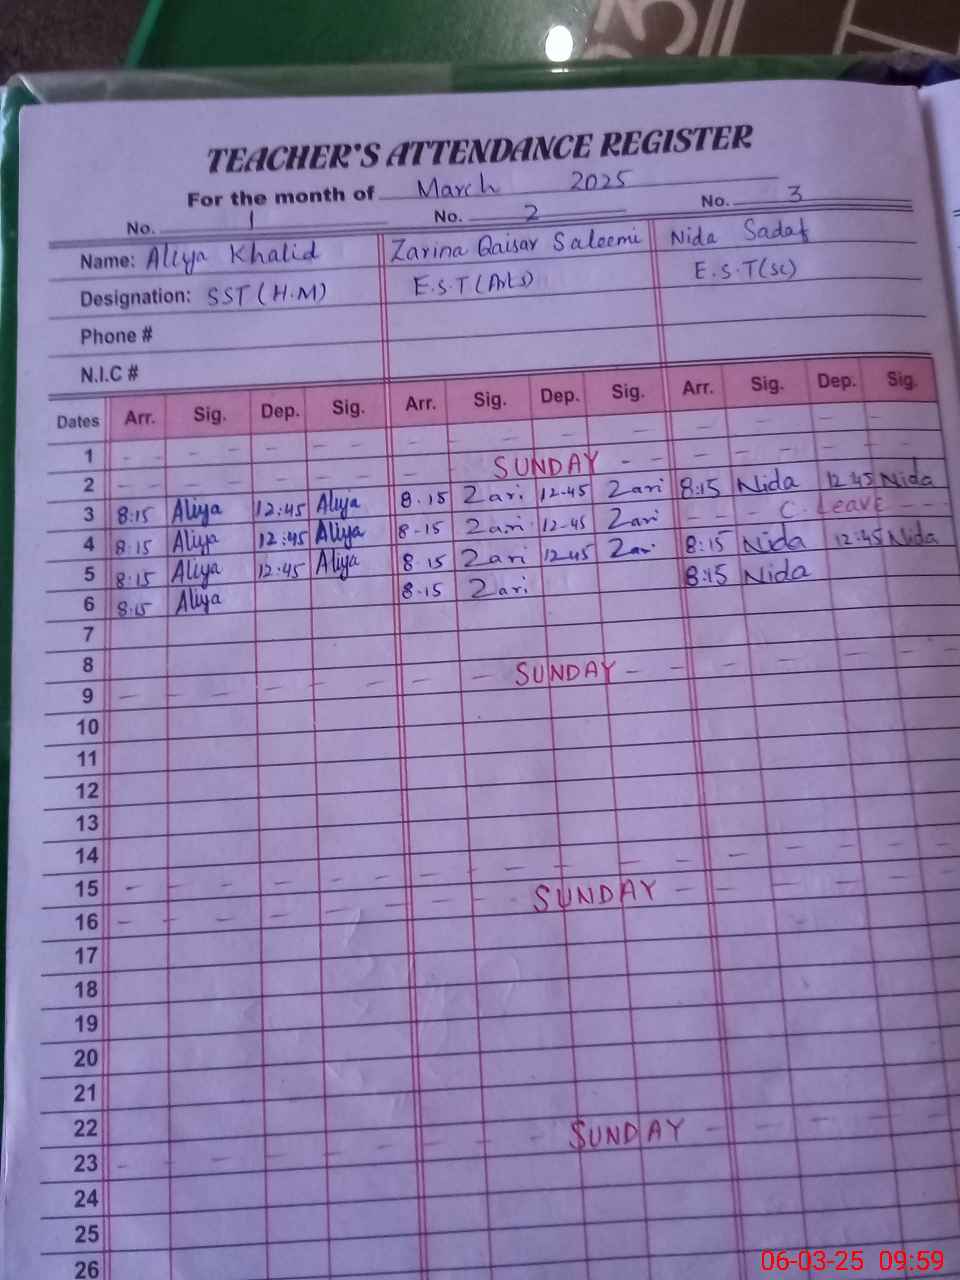 TEACHER'S ATTENDANCE REGISTER
For the month of March 2025
No. 1 No. 2 No. 3
Name: Aliya Khalid Zarina Qaisar Saleemi Nida Sadaf
Designation: SST (H.M) E.S.T (Arts) E.S.T (Sc)
Phone #
N.I.C #
Dates Arr. Sig. Dep. Sig. Arr. Sig. Dep. Sig. Arr. Sig. Dep. Sig.
1
2 SUNDAY
3 8:15 Aliya 12:45 Aliya 8.15 Zari 12-45 Zari 8:15 Nida 12 45 Nida
4 8:15 Aliya 12:45 Aliya 8-15 Zari 12-45 Zari C. Leave
5 8:15 Aliya 12:45 Aliya 8.15 Zari 12 45 Zari 8:15 Nida 12:45 Nida
6 8:15 Aliya 8.15 Zari 8:15 Nida
7
8
9 SUNDAY
10
11
12
13
14
15
16 SUNDAY
17
18
19
20
21
22
23 SUNDAY
24
25
26
06-03-25 09:59